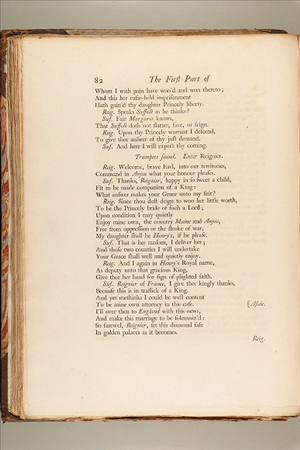 82 The First Part of
Whom I with pain have woo'd and won thereto;
And this her easie-held imprisonment
Hath gain'd thy daughter Princely liberty.
Reig. Speaks Suffolk as he thinks?
Suf. Fair Margaret knows,
That Suffolk doth not flatter, face, or feign.
Reig. Upon thy Princely warrant I descend,
To give thee answer of thy just demand.
Suf. And here I will expect thy coming.
Trumpets sound. Enter Reignier.
Reig. Welcome, brave Earl, into our territories,
Command in Anjou what your honour pleases.
Suf. Thanks, Reignier, happy in so sweet a child,
Fit to be made companion of a King:
What answer makes your Grace unto my suit?
Reig. Since thou dost deign to woo her little worth,
To be the Princely bride of such a Lord;
Upon condition I may quietly
Enjoy mine own, the country Maine and Anjou,
Free from oppression or the stroke of war,
My daughter shall be Henry's, if he please.
Suf. That is her ransom, I deliver her;
And those two counties I will undertake
Your Grace shall well and quietly enjoy.
Reig. And I again in Henry's Royal name,
As deputy unto that gracious King,
Give thee her hand for sign of plighted faith.
Suf. Reignier of France, I give thee kingly thanks,
Because this is in traffick of a King.
And yet methinks I could be well content
To be mine own attorney in this case. Aside.
I'll over then to England with this news,
And make this marriage to be solemniz'd:
So farewel, Reignier, set this diamond safe
In golden palaces as it becomes.
Reig.